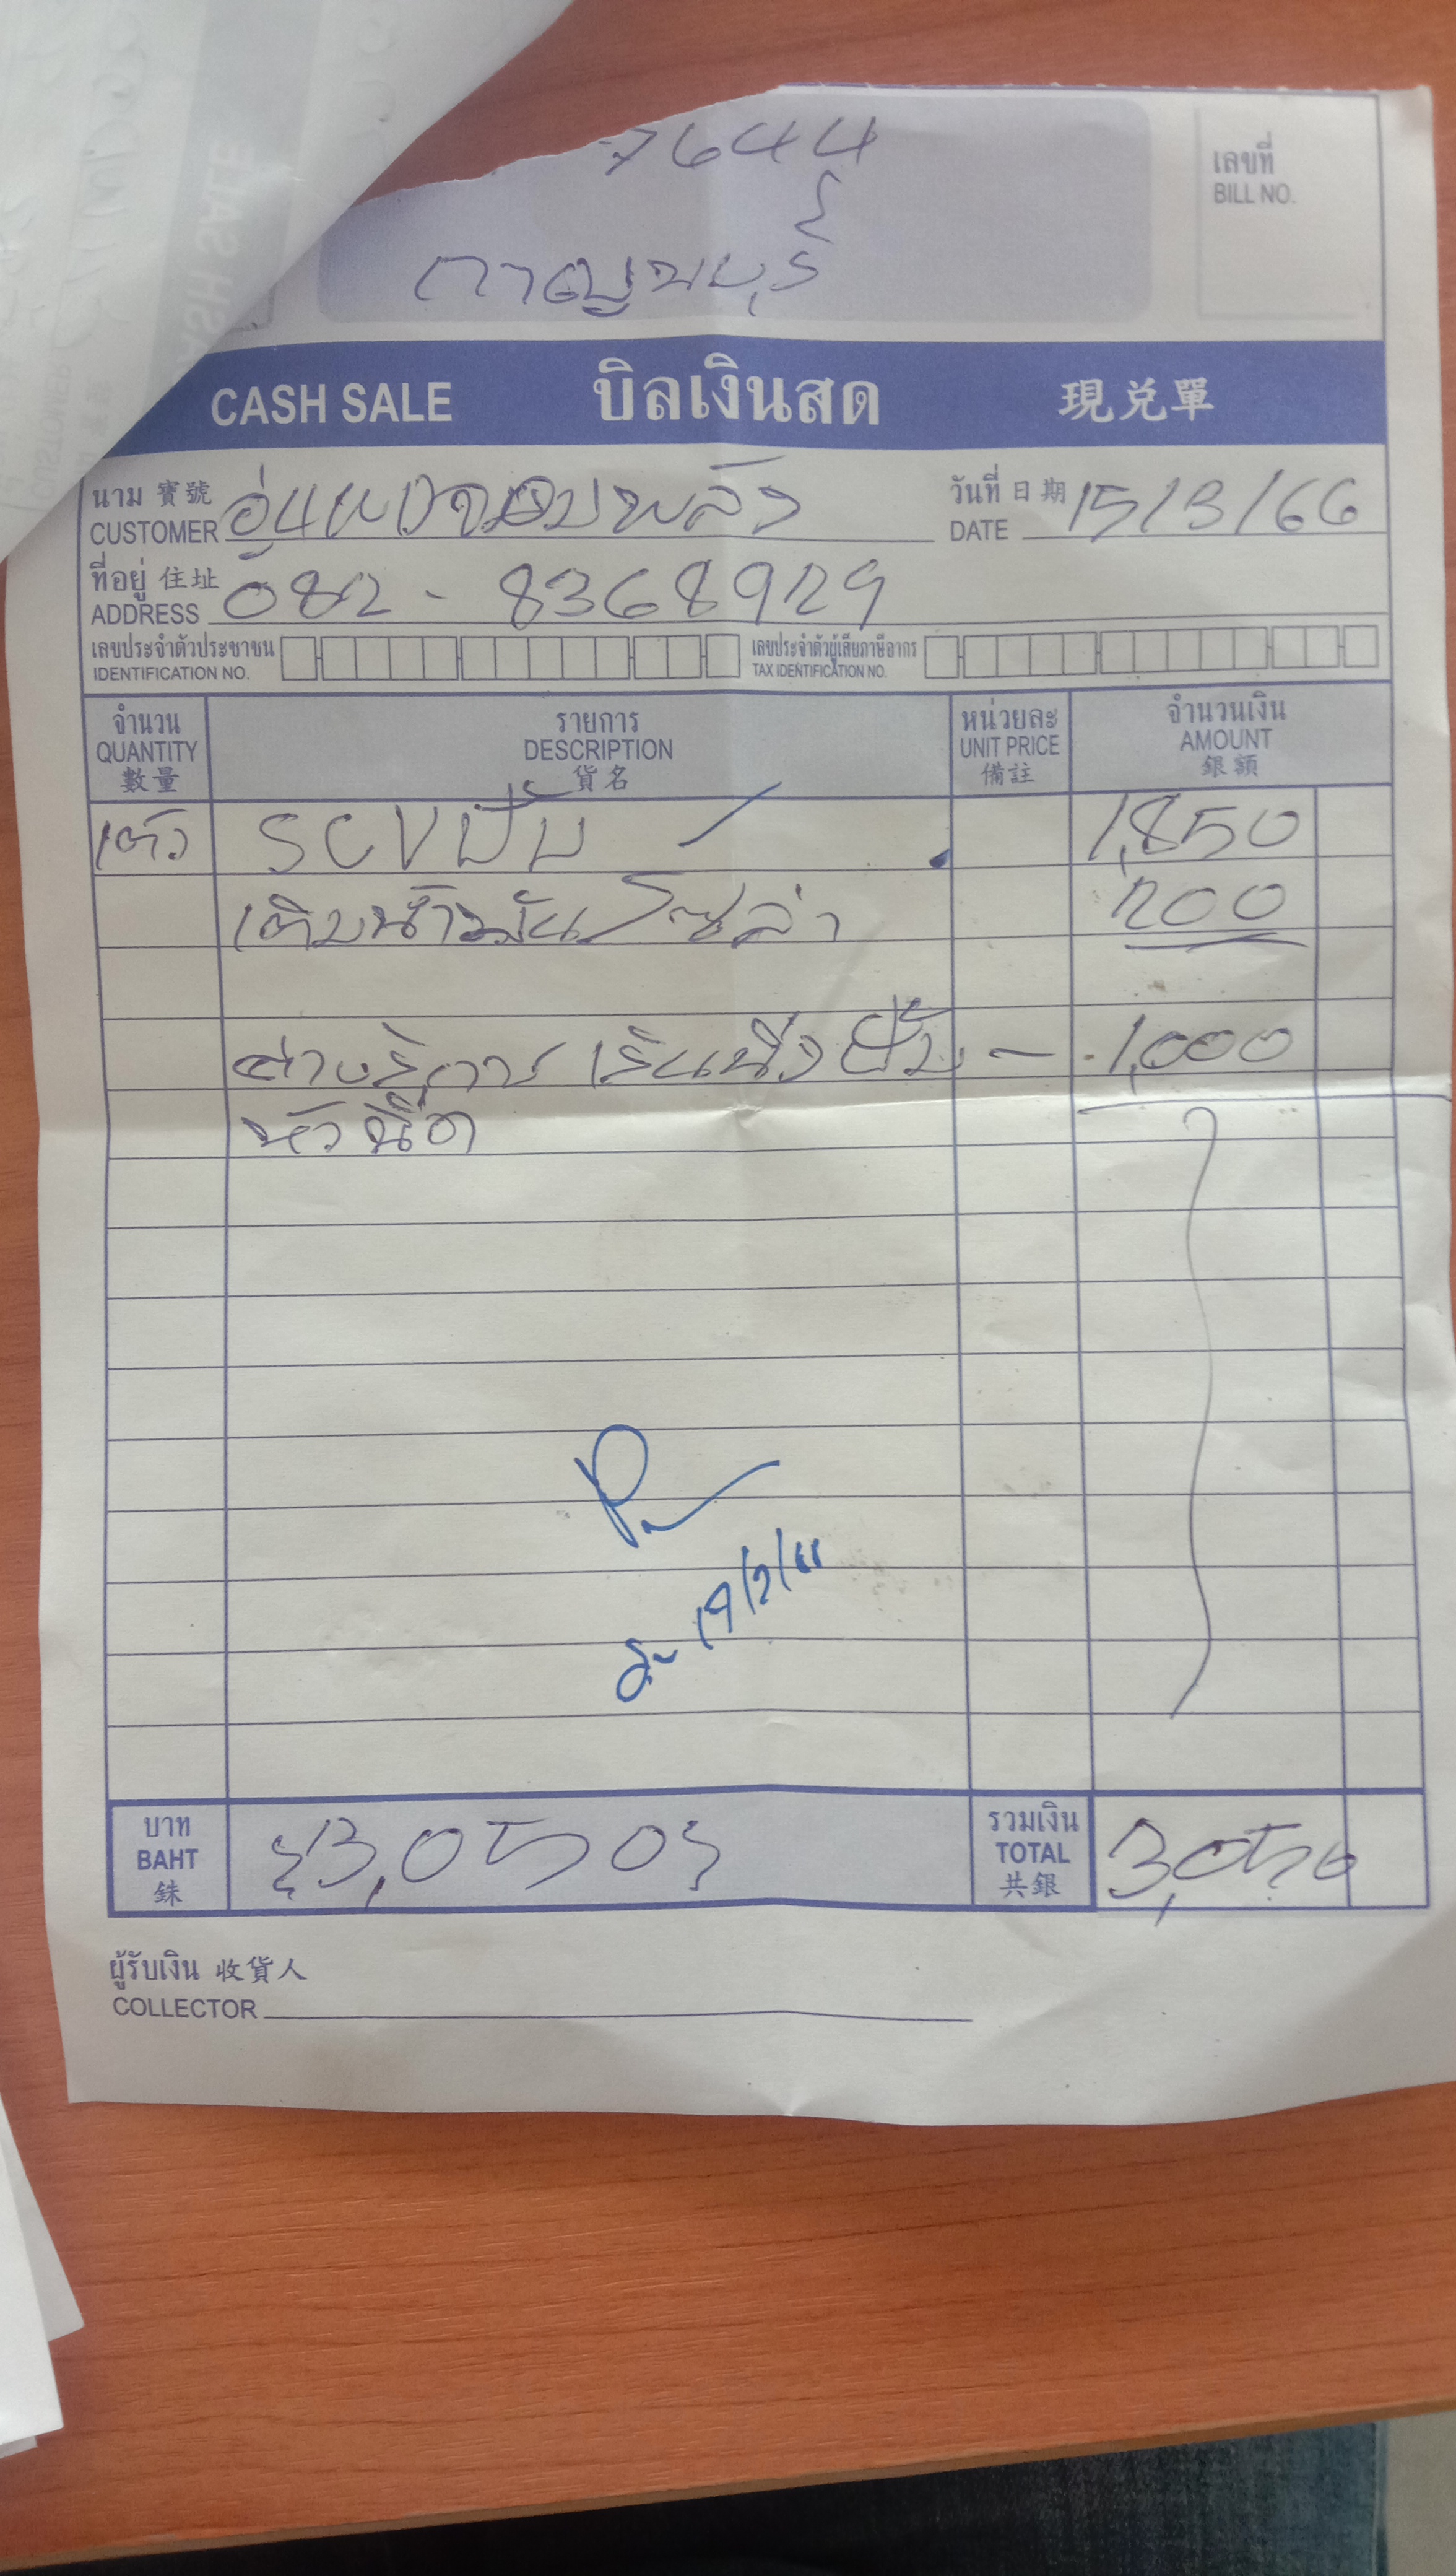 7644
กาญจนบุรี
เลขที่
BILL NO.
CASH SALE บิลเงินสด 現兌單
นาม 寶號
CUSTOMER อู่
วันที่ 日期
DATE 15/3/66
ที่อยู่ 住址
ADDRESS 082 - 8368929
เลขประจำตัวประชาชน
IDENTIFICATION NO.
เลขประจำตัวผู้เสียภาษีอากร
TAX IDENTIFICATION NO.
จำนวน
QUANTITY
數量
รายการ
DESCRIPTION
貨名
หน่วยละ
UNIT PRICE
備註
จำนวนเงิน
AMOUNT
銀額
1ตัว SCVปั๊ม 1,850
เติมน้ำมันโซล่า 200
ค่าบริการ ปั๊ม - 1,000
หัวฉีด
บาท
BAHT
銖
3,050
รวมเงิน
TOTAL
共銀
3,050
ผู้รับเงิน 收貨人
COLLECTOR
CASH SALE
CUSTOMER